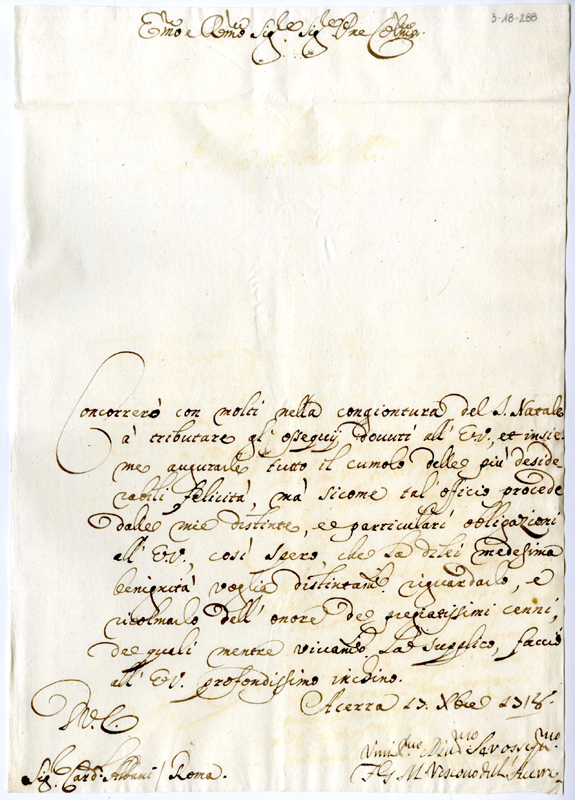 3-18-288
Emo e Rmo Sigre Sigre Pne Colmo
Concorrerò con molti nella congiontura del S. Natale
à tributare gl' ossequij douuti all' E.V. et insie
me augurarle tutto il cumolo delle più deside
rabili felicità, mà sicome tal' officio procede
dalle mie distinte, e particulari obligazioni
all' E.V., così spero, che la dilei medesima
benignità voglia distintamte riguardarlo, e
ricolmarlo dell' onore de pregiatissimi cenni,
de quali mentre vivamte La supplico, faccio
all' E.V. profondissimo inchino.
Acerra 13. Xbre
Umilmo Divmo Servo ossequmo
Sigr Card. Albani / Roma.
Vescovo dell' Acerra